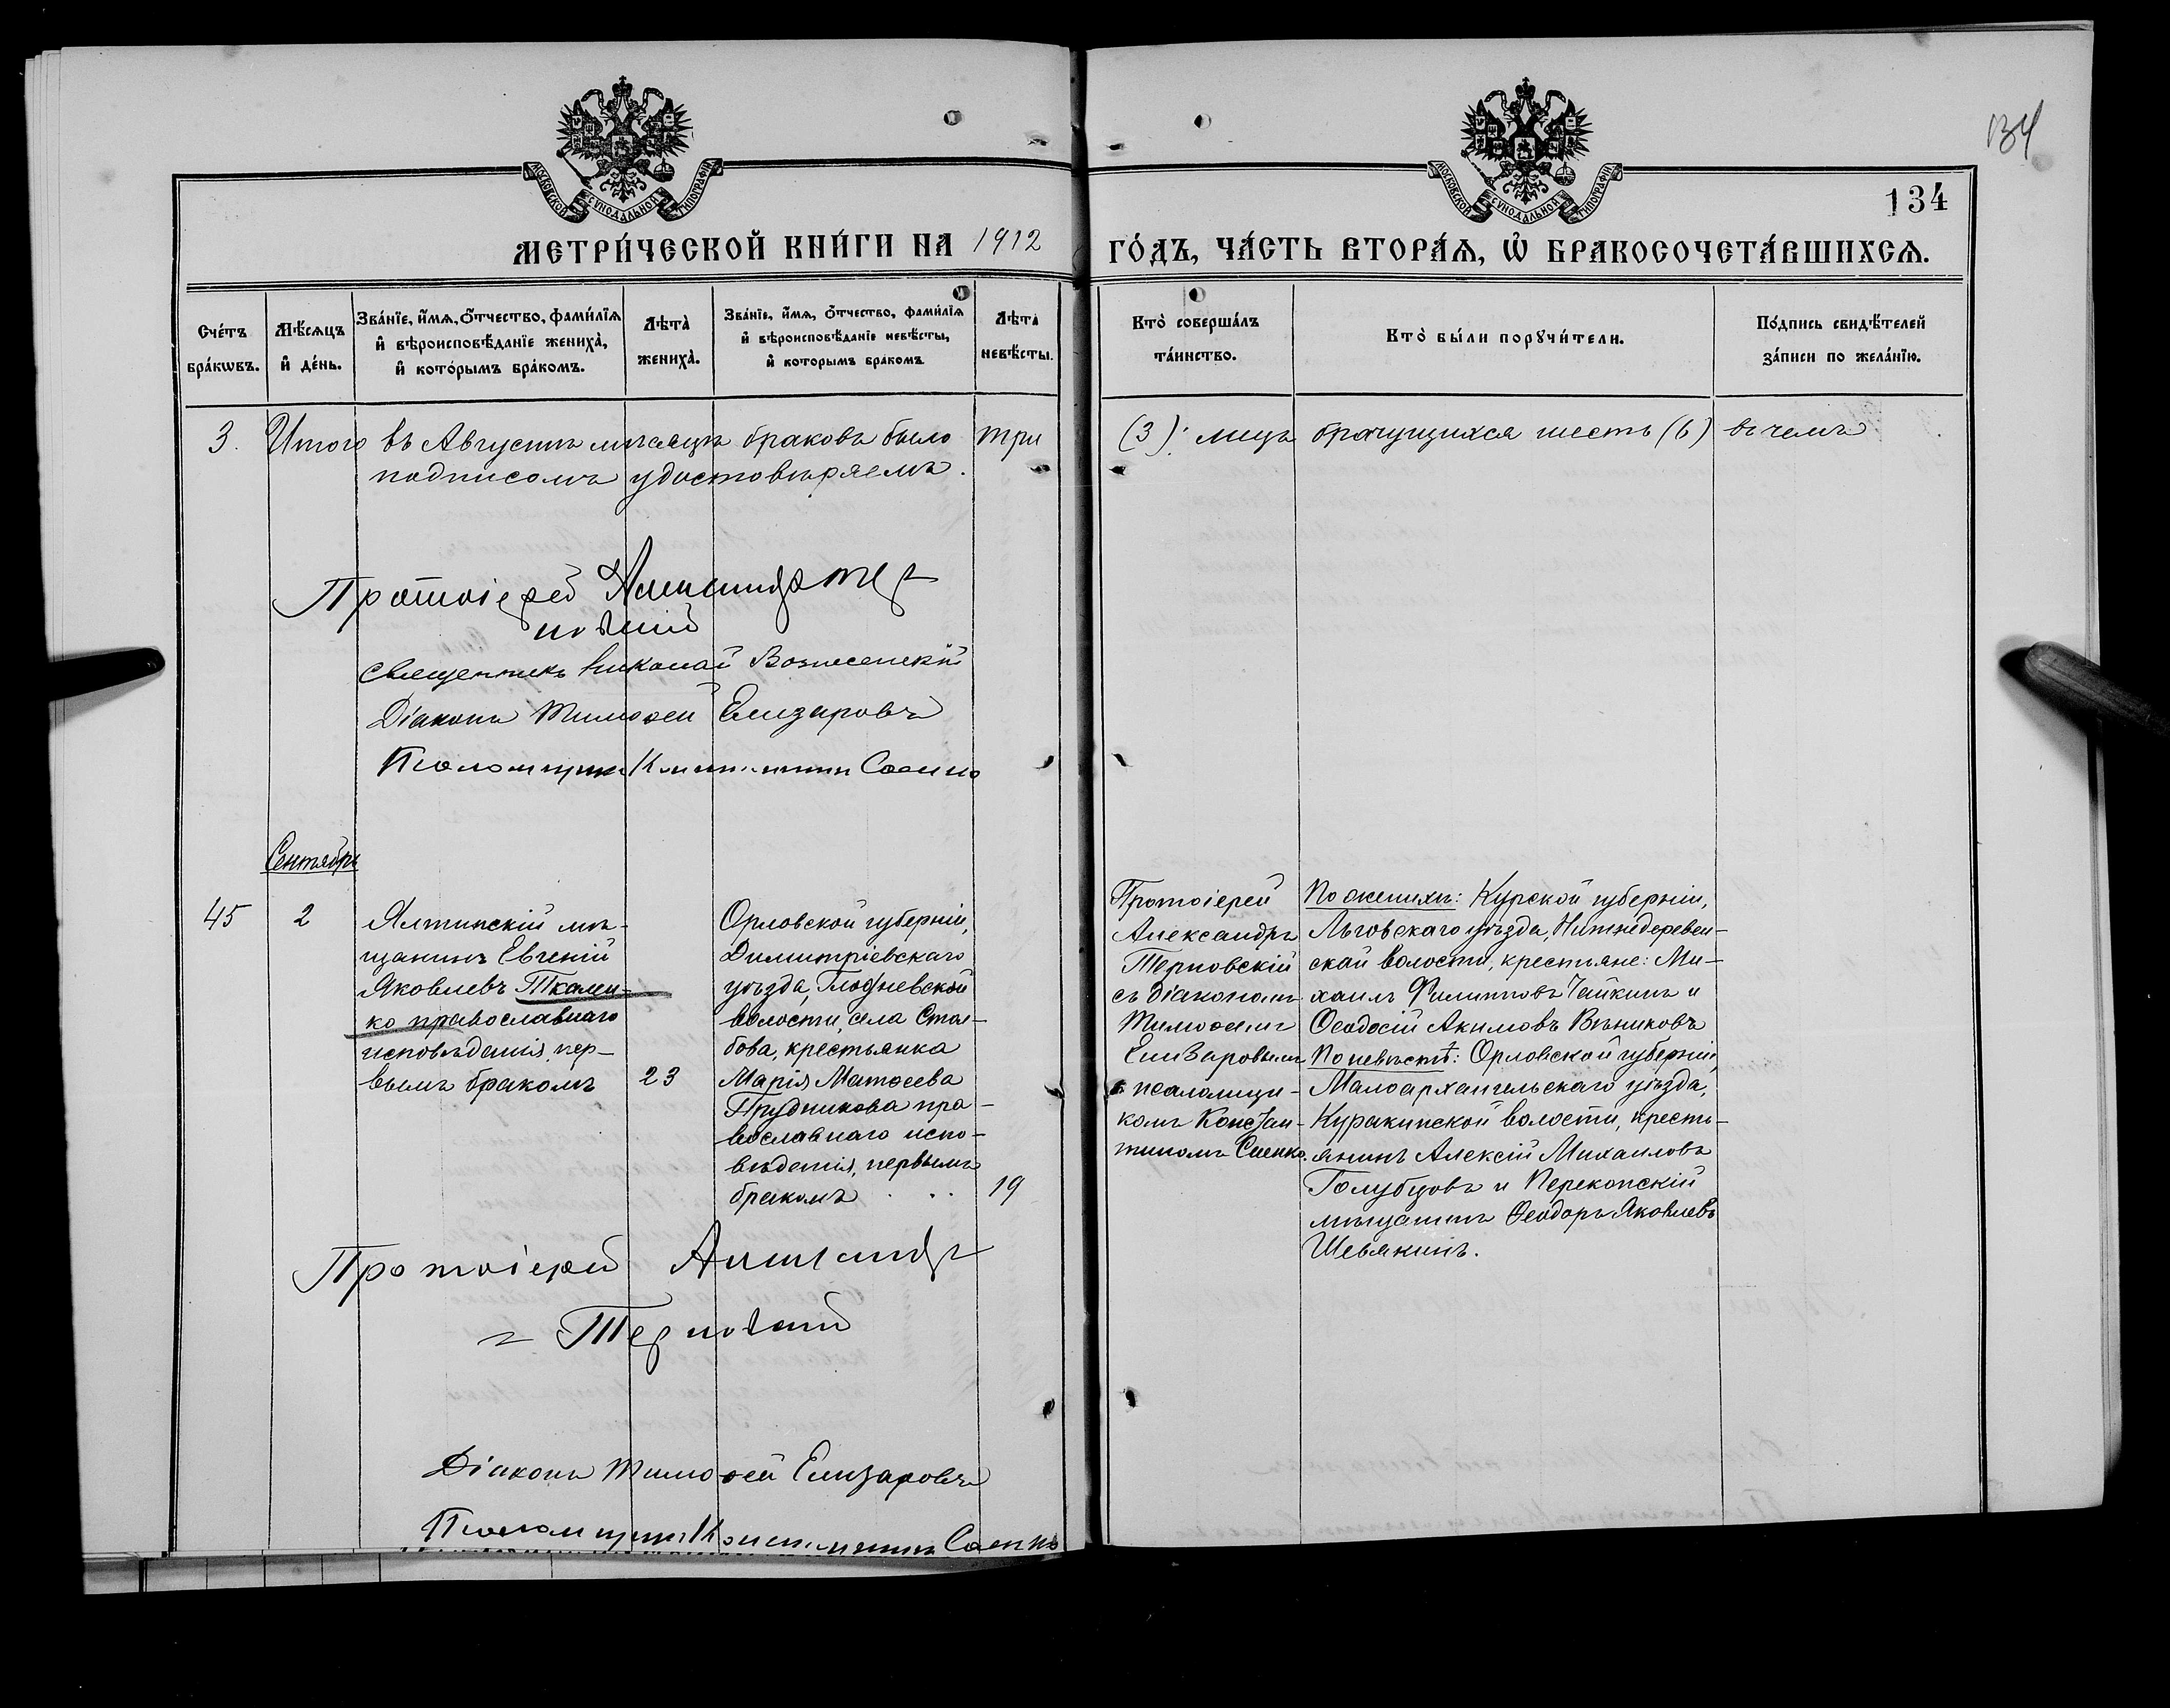 134
134
МОСКОВСКОЙ СѴНОДАЛЬНОЙ ТИПОГРАФІИ
МОСКОВСКОЙ СѴНОДАЛЬНОЙ ТИПОГРАФІИ
МЕТРИ́ЧЕСКОЙ КНИ́ГИ НА 1912 ГО́ДЪ, ЧА́СТЬ ВТОРА́Ѧ, Ѡ҆ БРАКОСОЧЕТА́ВШИХСѦ.
Сче́тъ
бра́кѡвъ.
Мѣ́сѧцъ
и҆ де́нь.
Зва́нїе, и҆́мѧ, ѻ҆́тчество, фами́лїѧ
и҆ вѣроисповѣ́данїе жениха̀,
и҆ кото́рымъ бра́комъ.
Лѣта̀
жениха̀.
Зва́нїе, и҆́мѧ, ѻ҆́тчество, фами́лїѧ
и҆ вѣроисповѣ́данїе невѣ́сты,
и҆ которымъ бра́комъ
Лѣта̀
невѣ́сты.
Кто̀ соверша́лъ
та́инство.
Кто̀ бы́ли порꙋчи́тели.
По́дпись свидѣ́телей
за́писи по жела́нїю.
3. Итого въ Августѣ мѣсяцѣ браковъ было три (3); лицъ брачущихся шесть (6) въ чемъ
подписомъ удостовѣряемъ.
Протоіерей Александръ Тер
новскій
Священникъ Николай Вознесенскій
Діаконъ Тимоѳей Елизаровъ
Псаломщикъ Константинъ Саенко
Сентябрь
45
2
Ялтинскій мѣ-
щанинъ Евгеній
Яковлевъ Ткален-
ко православнаго
исповѣданія, пер-
вымъ бракомъ
23
Орловской губерніи,
Димитріевскаго
уѣзда, Глодневской
волости, села Стол-
бова, крестьянка
Марія Матѳеева
Прудникова пра-
вославнаго испо-
вѣданія, первымъ
бракомъ . . .
19
Протоіерей
Александръ
Терновскій
съ діакономъ
Тимоѳеемъ
Елизаровымъ
и псаломщи-
комъ Констан-
тиномъ Саенко.
По женихѣ: Курской губерніи,
Льговскаго уѣзда, Нижнедеревен-
ской волости, крестьяне: Ми-
хаилъ Филипповъ Чайкинъ и
Ѳеодосій Акимовъ Вѣниковъ
По невѣстѣ: Орловской губерніи,
Малоархангельскаго уѣзда,
Куракинской волости, кресть-
янинъ Алексій Михаиловъ
Голубцовъ и Перекопскій
мѣщанинъ Ѳеодоръ Яковлевъ
Шевякинъ.
Протоіерей Александръ
Терновскій
Діаконъ Тимоѳей Елизаровъ
Псаломщикъ Константинъ Саенко